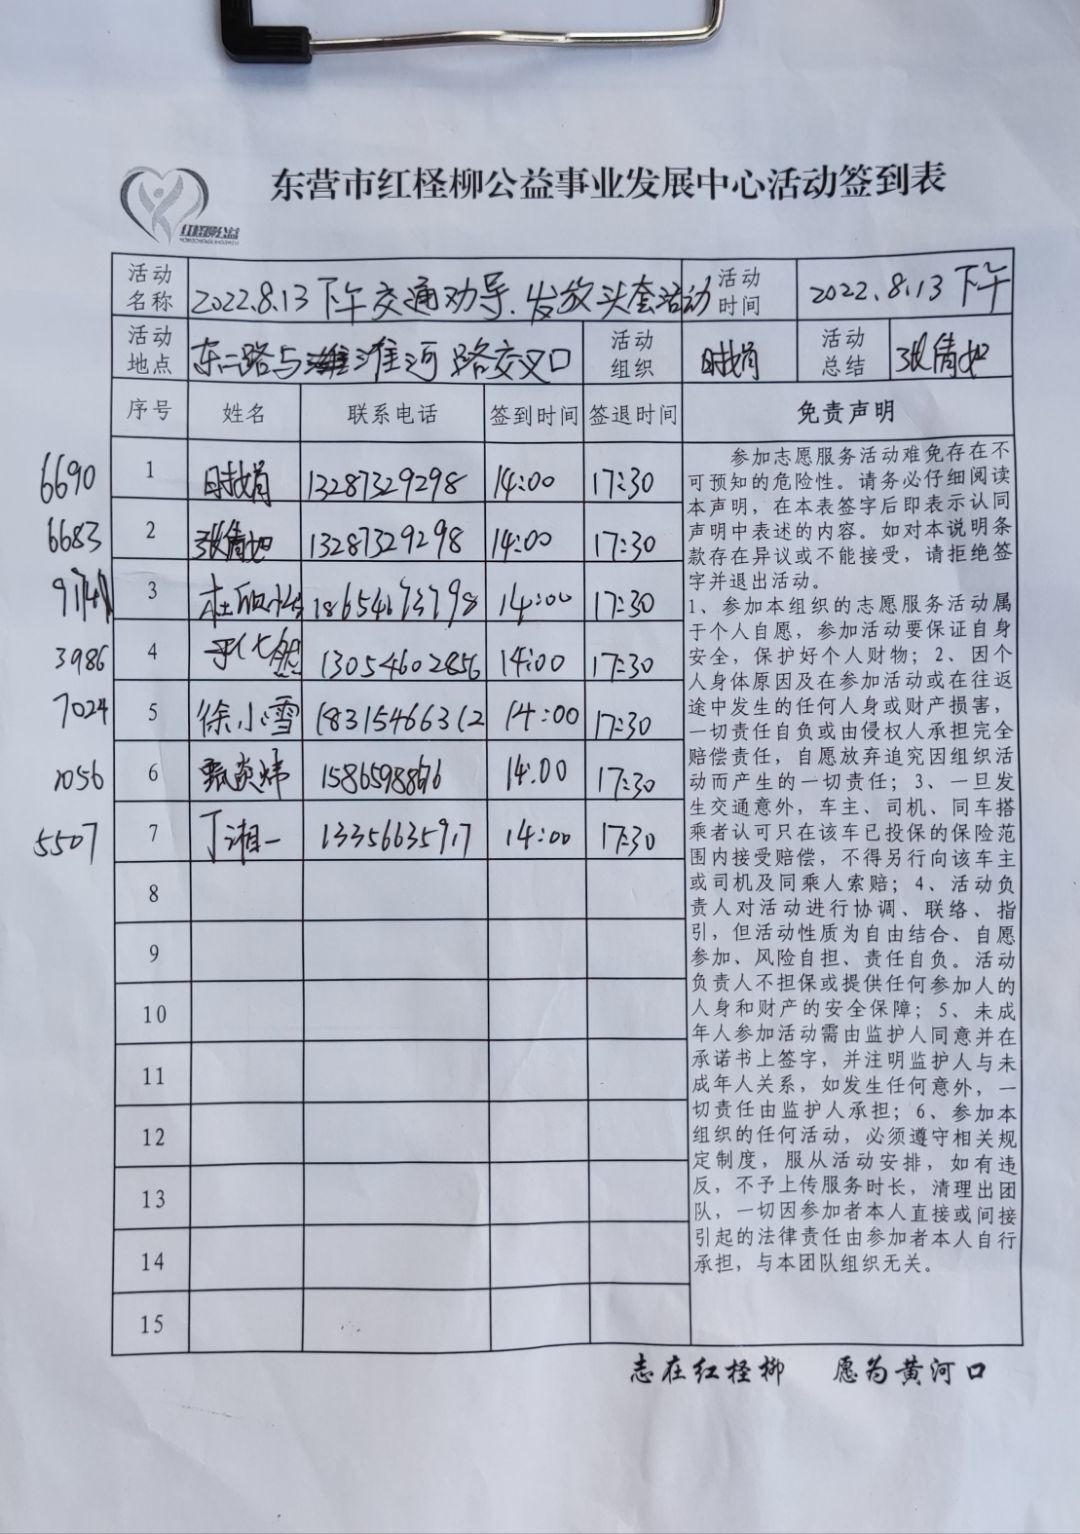 东营市红柽柳公益事业发展中心活动签到表
红柽柳公益
活动名称 2022.8.13下午交通劝导.发放头套活动 活动时间 2022.8.13下午
活动地点 东二路与淮河路交叉口 活动组织 时娟 活动总结 张倩
序号 姓名 联系电话 签到时间 签退时间 免责声明
6690 1 时娟 13287329298 14:00 17:30
6683 2 张倩 13287329298 14:00 17:30
3 杜 14:00 17:30
3986 4 13054602856 14:00 17:30
7024 5 徐小雪 18315466312 14:00 17:30
1056 6 甄炎炜 14:00 17:30
5507 7 丁湘一 13356635917 14:00 17:30
8
9
10
11
12
13
14
15
参加志愿服务活动难免存在不
可预知的危险性。请务必仔细阅读
本声明，在本表签字后即表示认同
声明中表述的内容。如对本说明条
款存在异议或不能接受，请拒绝签
字并退出活动。
1、参加本组织的志愿服务活动属
于个人自愿，参加活动要保证自身
安全，保护好个人财物；2、因个
人身体原因及在参加活动或在往返
途中发生的任何人身或财产损害，
一切责任自负或由侵权人承担完全
赔偿责任，自愿放弃追究因组织活
动而产生的一切责任；3、一旦发
生交通意外，车主、司机、同车搭
乘者认可只在该车已投保的保险范
围内接受赔偿，不得另行向该车主
或司机及同乘人索赔；4、活动负
责人对活动进行协调、联络、指
引，但活动性质为自由结合、自愿
参加、风险自担、责任自负。活动
负责人不担保或提供任何参加人的
人身和财产的安全保障；5、未成
年人参加活动需由监护人同意并在
承诺书上签字，并注明监护人与未
成年人关系，如发生任何意外，一
切责任由监护人承担；6、参加本
组织的任何活动，必须遵守相关规
定制度，服从活动安排，如有违
反，不予上传服务时长，清理出团
队，一切因参加者本人直接或间接
引起的法律责任由参加者本人自行
承担，与本团队组织无关。
志在红柽柳 愿为黄河口